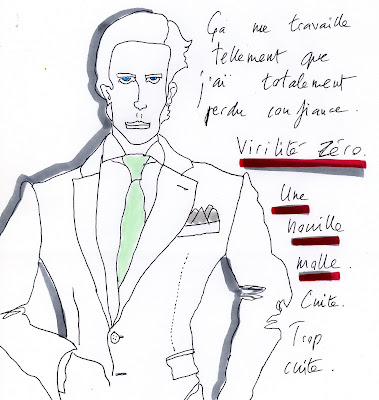 Ça me travaille
tellement que
j'ai totalement
perdu confiance.
Virilité Zéro.
Une
nouille
molle.
Cuite.
Trop
cuite.